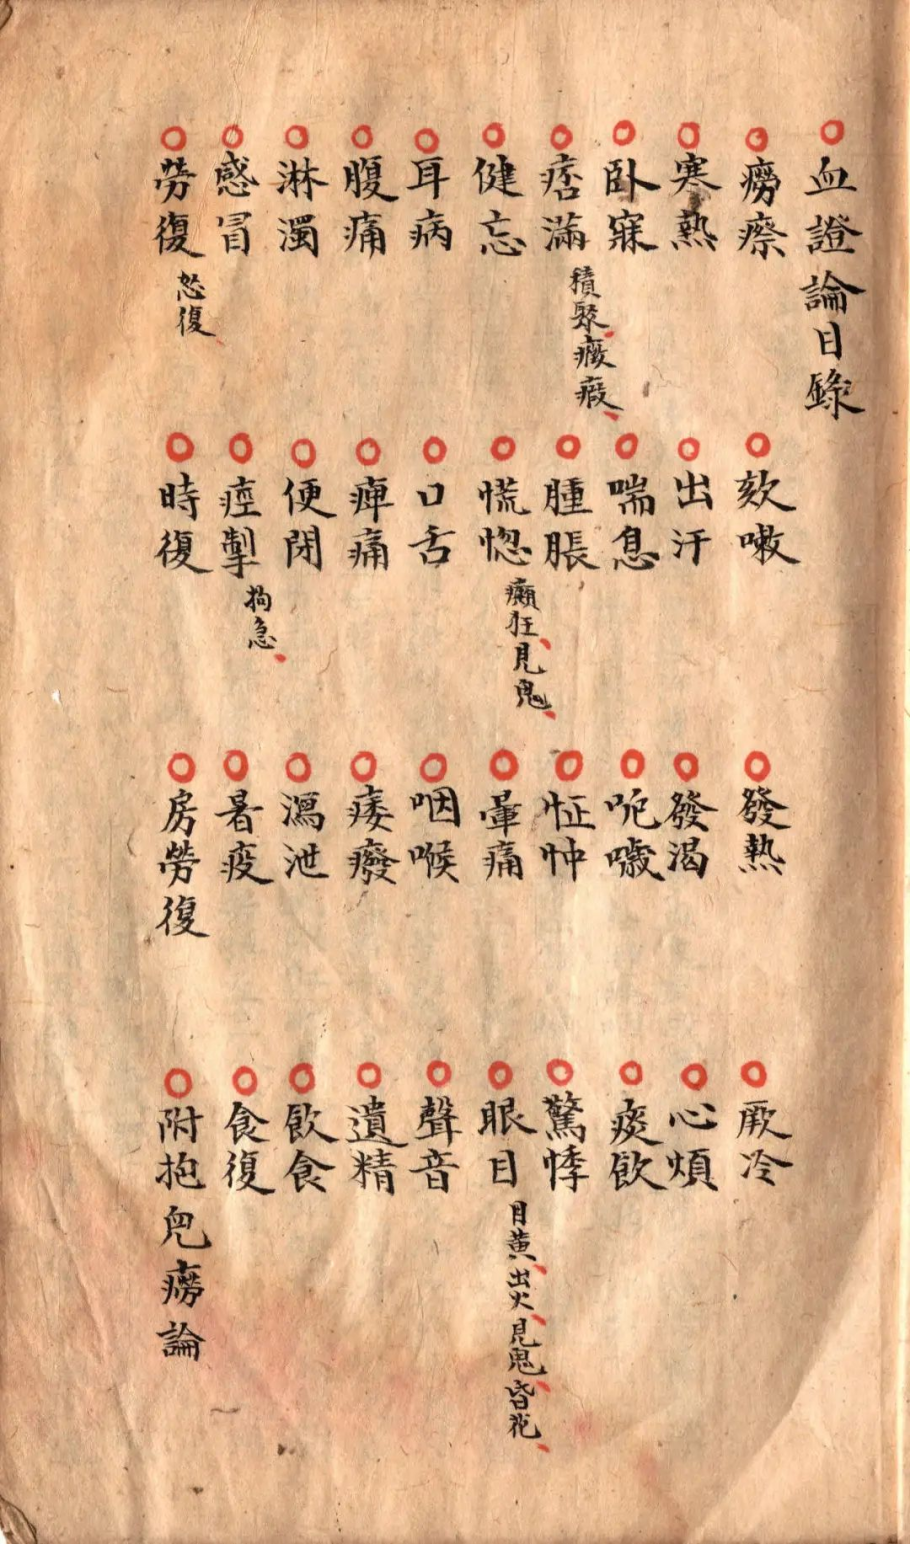 ○血證論目錄
○癆瘵 ○欬嗽 ○發熱 ○厥冷
○寒熱 ○出汗 ○發渴 ○心煩
○臥寐 ○喘息 ○呃噦 ○痰飲
○痞滿 積聚、癥瘕、 ○腫脹 ○怔忡 ○驚悸
○健忘 ○慌惚 癲狂、見鬼、 ○暈痛 ○眼目 目黃、出火、見鬼、昏花、
○耳病 ○口舌 ○咽喉 ○聲音
○腹痛 ○痺痛 ○痿廢 ○遺精
○淋濁 ○便閉 ○瀉泄 ○飲食
○感冒 ○痙掣 拘急、 ○暑疫 ○食復
○勞復 怒復、 ○時復 ○房勞復 ○附抱兒癆論